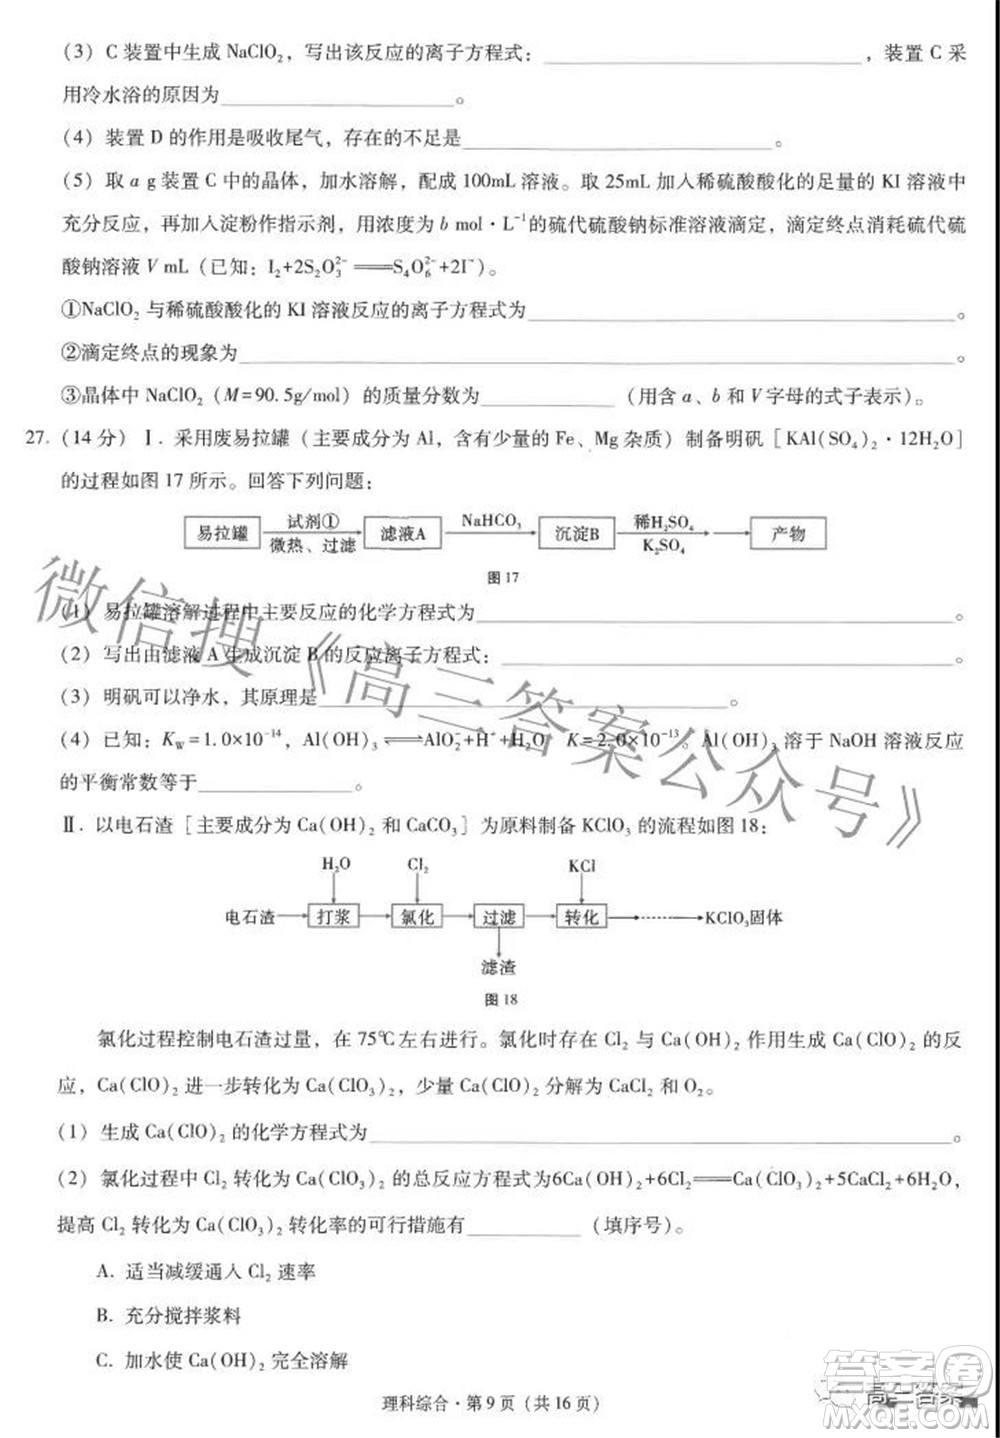 (3) C 装置中生成 NaClO₂，写出该反应的离子方程式：____________，装置 C 采
用冷水浴的原因为____________。
(4) 装置 D 的作用是吸收尾气，存在的不足是____________。
(5) 取 a g 装置 C 中的晶体，加水溶解，配成 100mL 溶液。取 25mL 加入稀硫酸酸化的足量的 KI 溶液中
充分反应，再加入淀粉作指示剂，用浓度为 b mol·L⁻¹的硫代硫酸钠标准溶液滴定，滴定终点消耗硫代硫
酸钠溶液 V mL（已知：I₂+2S₂O₃²⁻══S₄O₆²⁻+2I⁻）。
①NaClO₂ 与稀硫酸酸化的 KI 溶液反应的离子方程式为____________。
②滴定终点的现象为____________。
③晶体中 NaClO₂（M=90.5g/mol）的质量分数为____________（用含 a、b 和 V 字母的式子表示）。
27.（14 分）Ⅰ. 采用废易拉罐（主要成分为 Al，含有少量的 Fe、Mg 杂质）制备明矾［KAl(SO₄)₂·12H₂O］
的过程如图 17 所示。回答下列问题：
易拉罐 试剂① 微热、过滤 滤液A NaHCO₃ 沉淀B 稀H₂SO₄ K₂SO₄ 产物
图 17
(1) 易拉罐溶解过程中主要反应的化学方程式为____________。
(2) 写出由滤液 A 生成沉淀 B 的反应离子方程式：____________。
(3) 明矾可以净水，其原理是____________。
(4) 已知：K_W=1.0×10⁻¹⁴，Al(OH)₃⇌AlO₂⁻+H⁺+H₂O K=2.0×10⁻¹³。Al(OH)₃ 溶于 NaOH 溶液反应
的平衡常数等于____________。
Ⅱ. 以电石渣［主要成分为 Ca(OH)₂ 和 CaCO₃］为原料制备 KClO₃ 的流程如图 18：
H₂O Cl₂ KCl
电石渣 打浆 氯化 过滤 转化 KClO₃固体
滤渣
图 18
氯化过程控制电石渣过量，在 75℃左右进行。氯化时存在 Cl₂ 与 Ca(OH)₂ 作用生成 Ca(ClO)₂ 的反
应，Ca(ClO)₂ 进一步转化为 Ca(ClO₃)₂，少量 Ca(ClO)₂ 分解为 CaCl₂ 和 O₂。
(1) 生成 Ca(ClO)₂ 的化学方程式为____________。
(2) 氯化过程中 Cl₂ 转化为 Ca(ClO₃)₂ 的总反应方程式为6Ca(OH)₂+6Cl₂══Ca(ClO₃)₂+5CaCl₂+6H₂O，
提高 Cl₂ 转化为 Ca(ClO₃)₂ 转化率的可行措施有____________（填序号）。
A. 适当减缓通入 Cl₂ 速率
B. 充分搅拌浆料
C. 加水使 Ca(OH)₂ 完全溶解
理科综合·第 9 页（共 16 页）
微信搜《高三答案公众号》
答案圈
高三答案
MXQE.COM